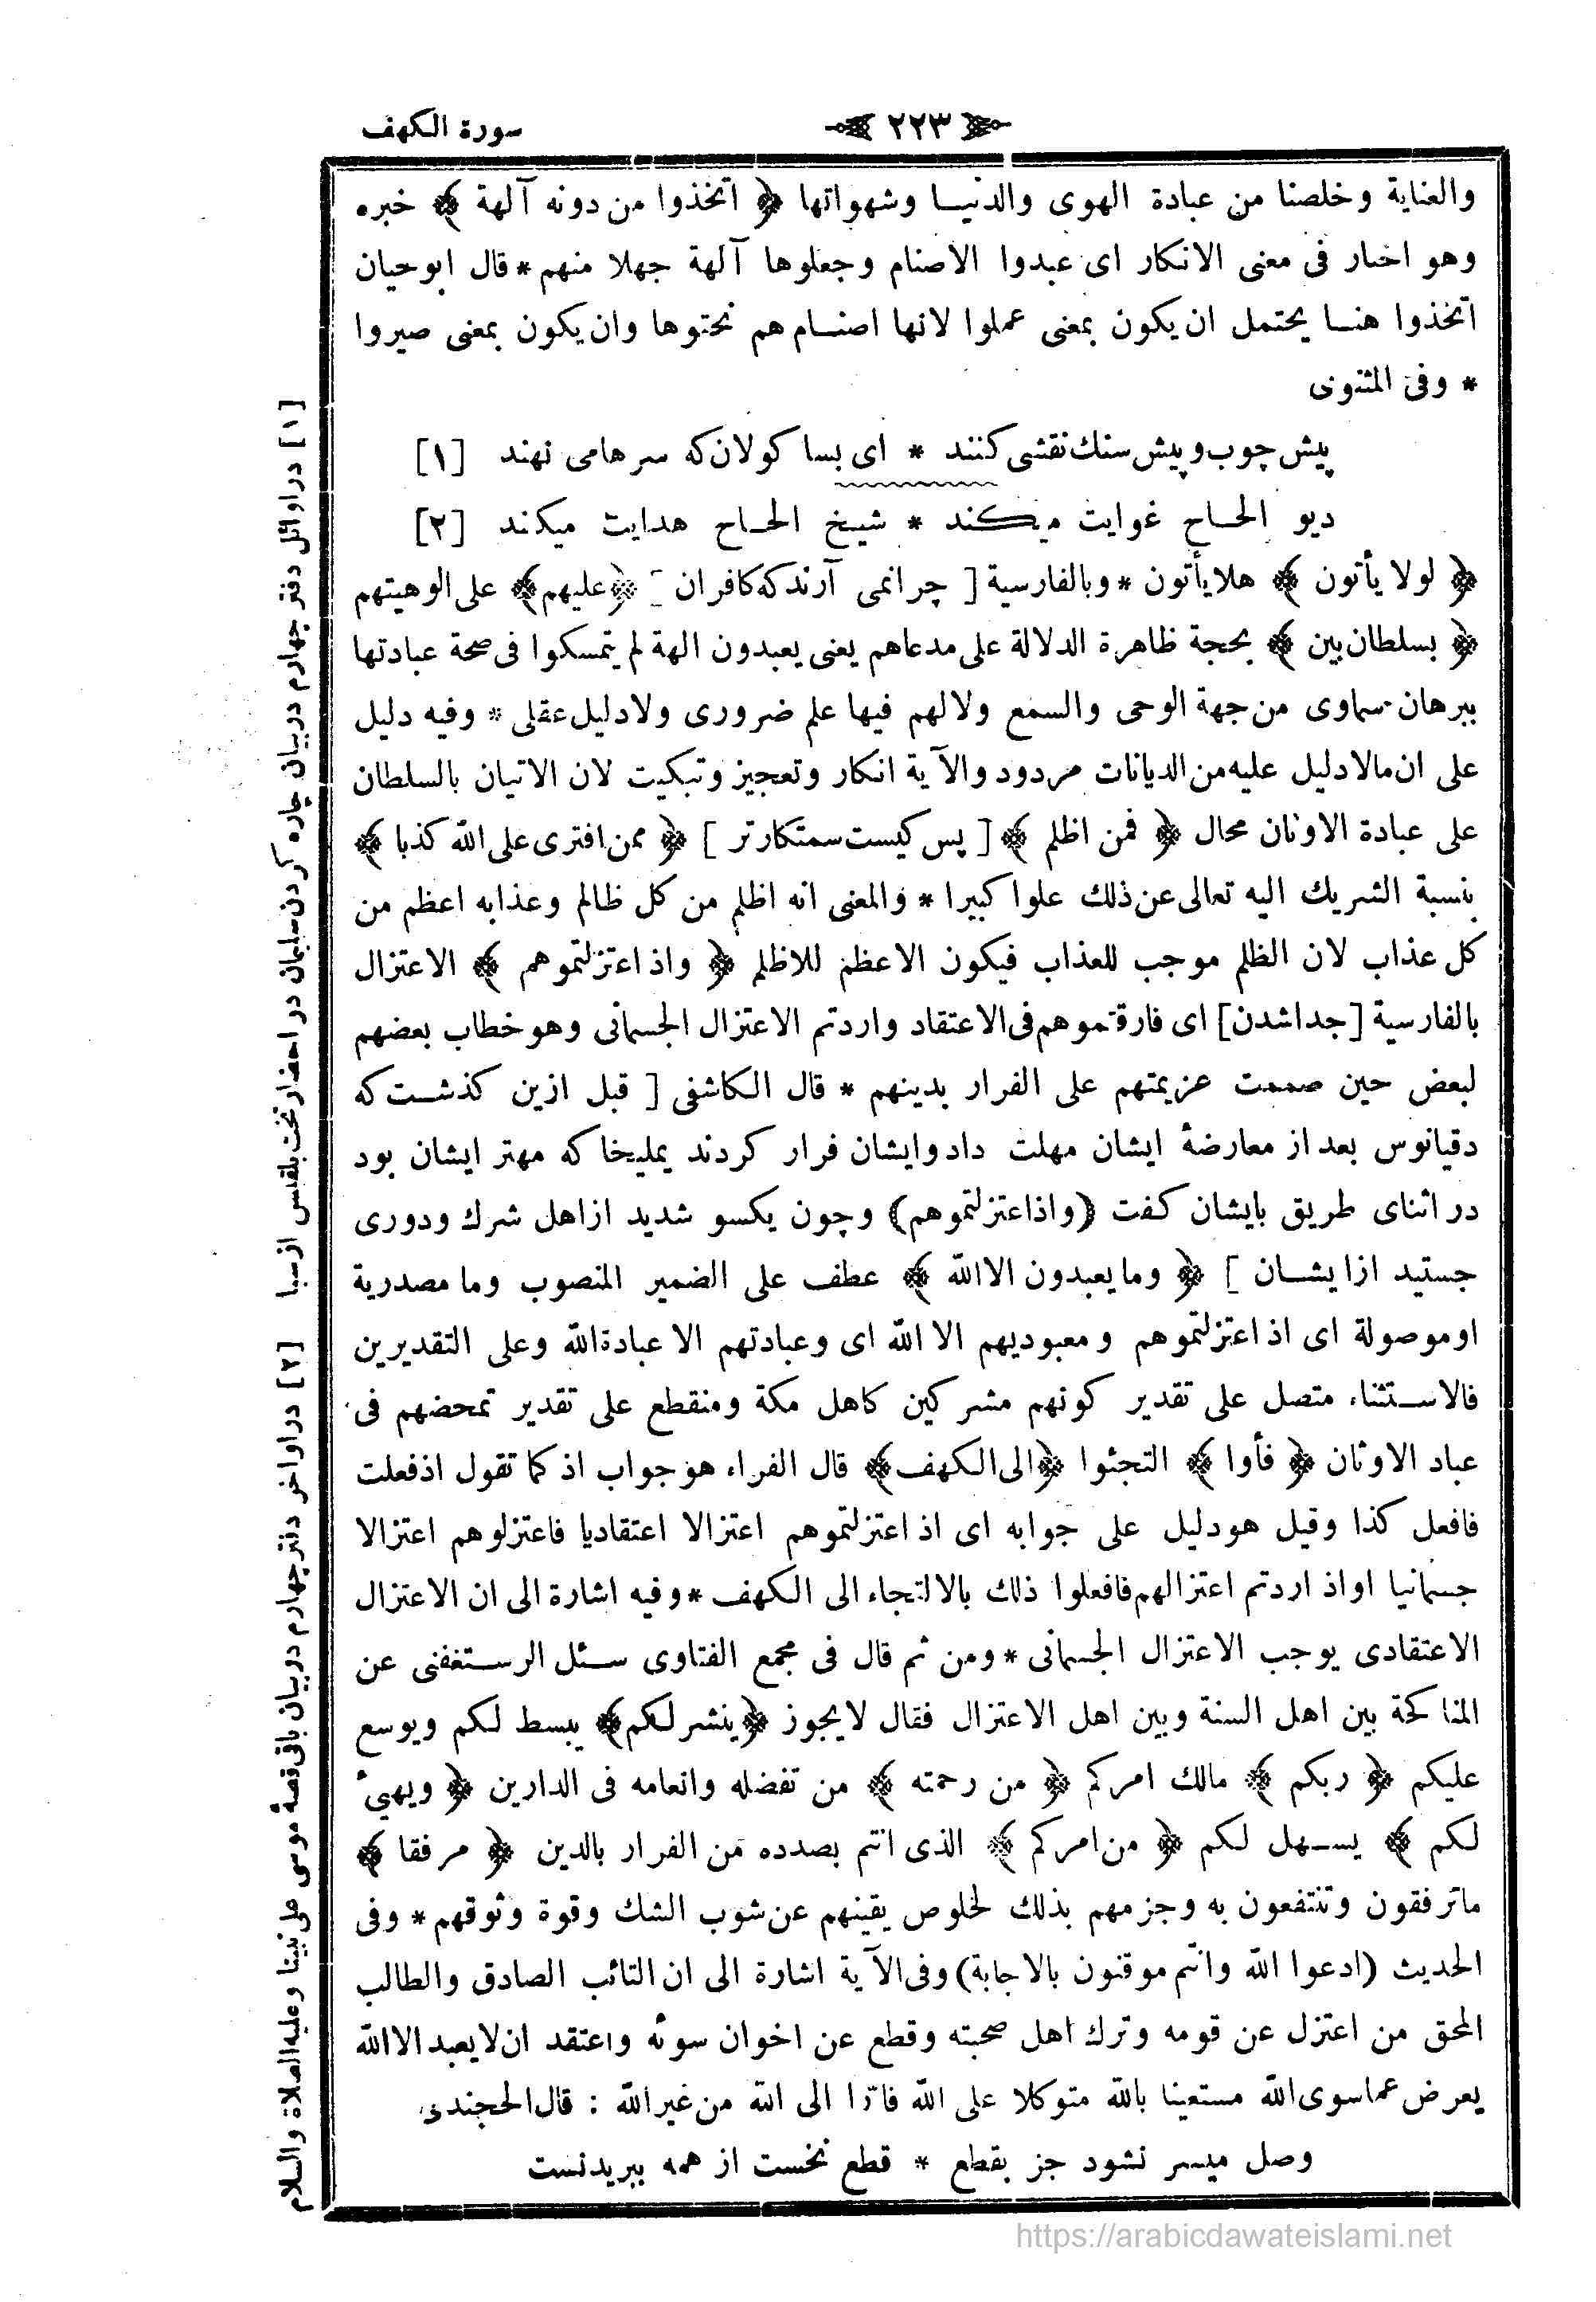 سورة الكهف
﴿ ٢٢٣ ﴾
والعناية وخلصنا من عبادة الهوى والدنيا وشهواتها ﴿ اتخذوا من دونه آلهة ﴾ خبره
وهو اخبار فى معنى الانكار اى عبدوا الاصنام وجعلوها آلهة جهلا منهم * قال ابوحيان
اتخذوا هنا يحتمل ان يكون بمعنى عملوا لانها اصنام هم نحتوها وان يكون بمعنى صيروا
* وفى المثنوى
پيش چوب وپيش سنك نقشى كنند * اى بسا كولان كه سرهامى نهند [١]
ديو الحاح غوايت ميكند * شيخ الحاح هدايت ميكند [٢]
﴿ لولا يأتون ﴾ هلا يأتون * وبالفارسية [ چرانمى آرندكه كافران ] ﴿عليهم﴾ على الوهيتهم
﴿ بسلطان بين ﴾ بحجة ظاهرة الدلالة على مدعاهم يعنى يعبدون الهة لم يتمسكوا فى صحة عبادتها
ببرهان سماوى من جهة الوحى والسمع ولالهم فيها علم ضرورى ولادليل عقلى * وفيه دليل
على ان مالادليل عليه من الديانات مردود والآية انكار وتعجيز وتبكيت لان الاتيان بالسلطان
على عبادة الاوثان محال ﴿ فمن اظلم ﴾ [ پس كيست ستمكارتر ] ﴿ ممن افترى على الله كذبا ﴾
بنسبة الشريك اليه تعالى عن ذلك علوا كبيرا * والمعنى انه اظلم من كل ظالم وعذابه اعظم من
كل عذاب لان الظلم موجب للعذاب فيكون الاعظم للاظلم ﴿ واذ اعتزلتموهم ﴾ الاعتزال
بالفارسية [جداشدن] اى فارقتموهم فى الاعتقاد واردتم الاعتزال الجسمانى وهو خطاب بعضهم
لبعض حين صممت عزيمتهم على الفرار بدينهم * قال الكاشفى [ قبل ازين كذشت كه
دقيانوس بعد از معارضهٔ ايشان مهلت داد وايشان فرار كردند يمليخا كه مهتر ايشان بود
در اثناى طريق بايشان كفت (واذاعتزلتموهم) وچون يكسو شديد ازاهل شرك ودورى
جستيد ازايشان ] ﴿ ومايعبدون الاالله ﴾ عطف على الضمير المنصوب وما مصدرية
اوموصولة اى اذ اعتزلتموهم ومعبوديهم الا الله اى وعبادتهم الا عبادةالله وعلى التقديرين
فالاستثناء متصل على تقدير كونهم مشركين كاهل مكة ومنقطع على تقدير تمحضهم فى
عباد الاوثان ﴿ فأوا ﴾ التجئوا ﴿الى الكهف﴾ قال الفراء هو جواب اذ كما تقول اذفعلت
فافعل كذا وقيل هودليل على جوابه اى اذ اعتزلتموهم اعتزالا اعتقاديا فاعتزلوهم اعتزالا
جسمانيا اواذ اردتم اعتزالهم فافعلوا ذلك بالالتجاء الى الكهف * وفيه اشارة الى ان الاعتزال
الاعتقادى يوجب الاعتزال الجسمانى * ومن ثم قال فى مجمع الفتاوى سئل الرستغفنى عن
المناكحة بين اهل السنة وبين اهل الاعتزال فقال لايجوز ﴿ينشر لكم﴾ يبسط لكم ويوسع
عليكم ﴿ ربكم ﴾ مالك امركم ﴿ من رحمته ﴾ من تفضله وانعامه فى الدارين ﴿ ويهيئ
لكم ﴾ يسهل لكم ﴿ من امركم ﴾ الذى انتم بصدده من الفرار بالدين ﴿ مرفقا ﴾
ماترفقون وتنتفعون به وجزمهم بذلك لخلوص يقينهم عن شوب الشك وقوة وثوقهم * وفى
الحديث (ادعوا الله وانتم موقنون بالاجابة) وفى الآية اشارة الى ان التائب الصادق والطالب
المحق من اعتزل عن قومه وترك اهل صحبته وقطع عن اخوان سوئه واعتقد ان لايعبد الاالله
يعرض عماسوى الله مستعينا بالله متوكلا على الله فارّا الى الله من غيرالله : قال الخجندى
وصل ميسر نشود جز بقطع * قطع نخست از همه ببريدنست
[١] دراوائل دفتر چهارم دربيان چاره كردن سليمان در احضار تخت بلقيس ازسبا
[٢] دراواخر دفتر چهارم دربيان باقى قصهٔ موسى على نبينا وعليه الصلاة والسلام
https://arabicdawateislami.net